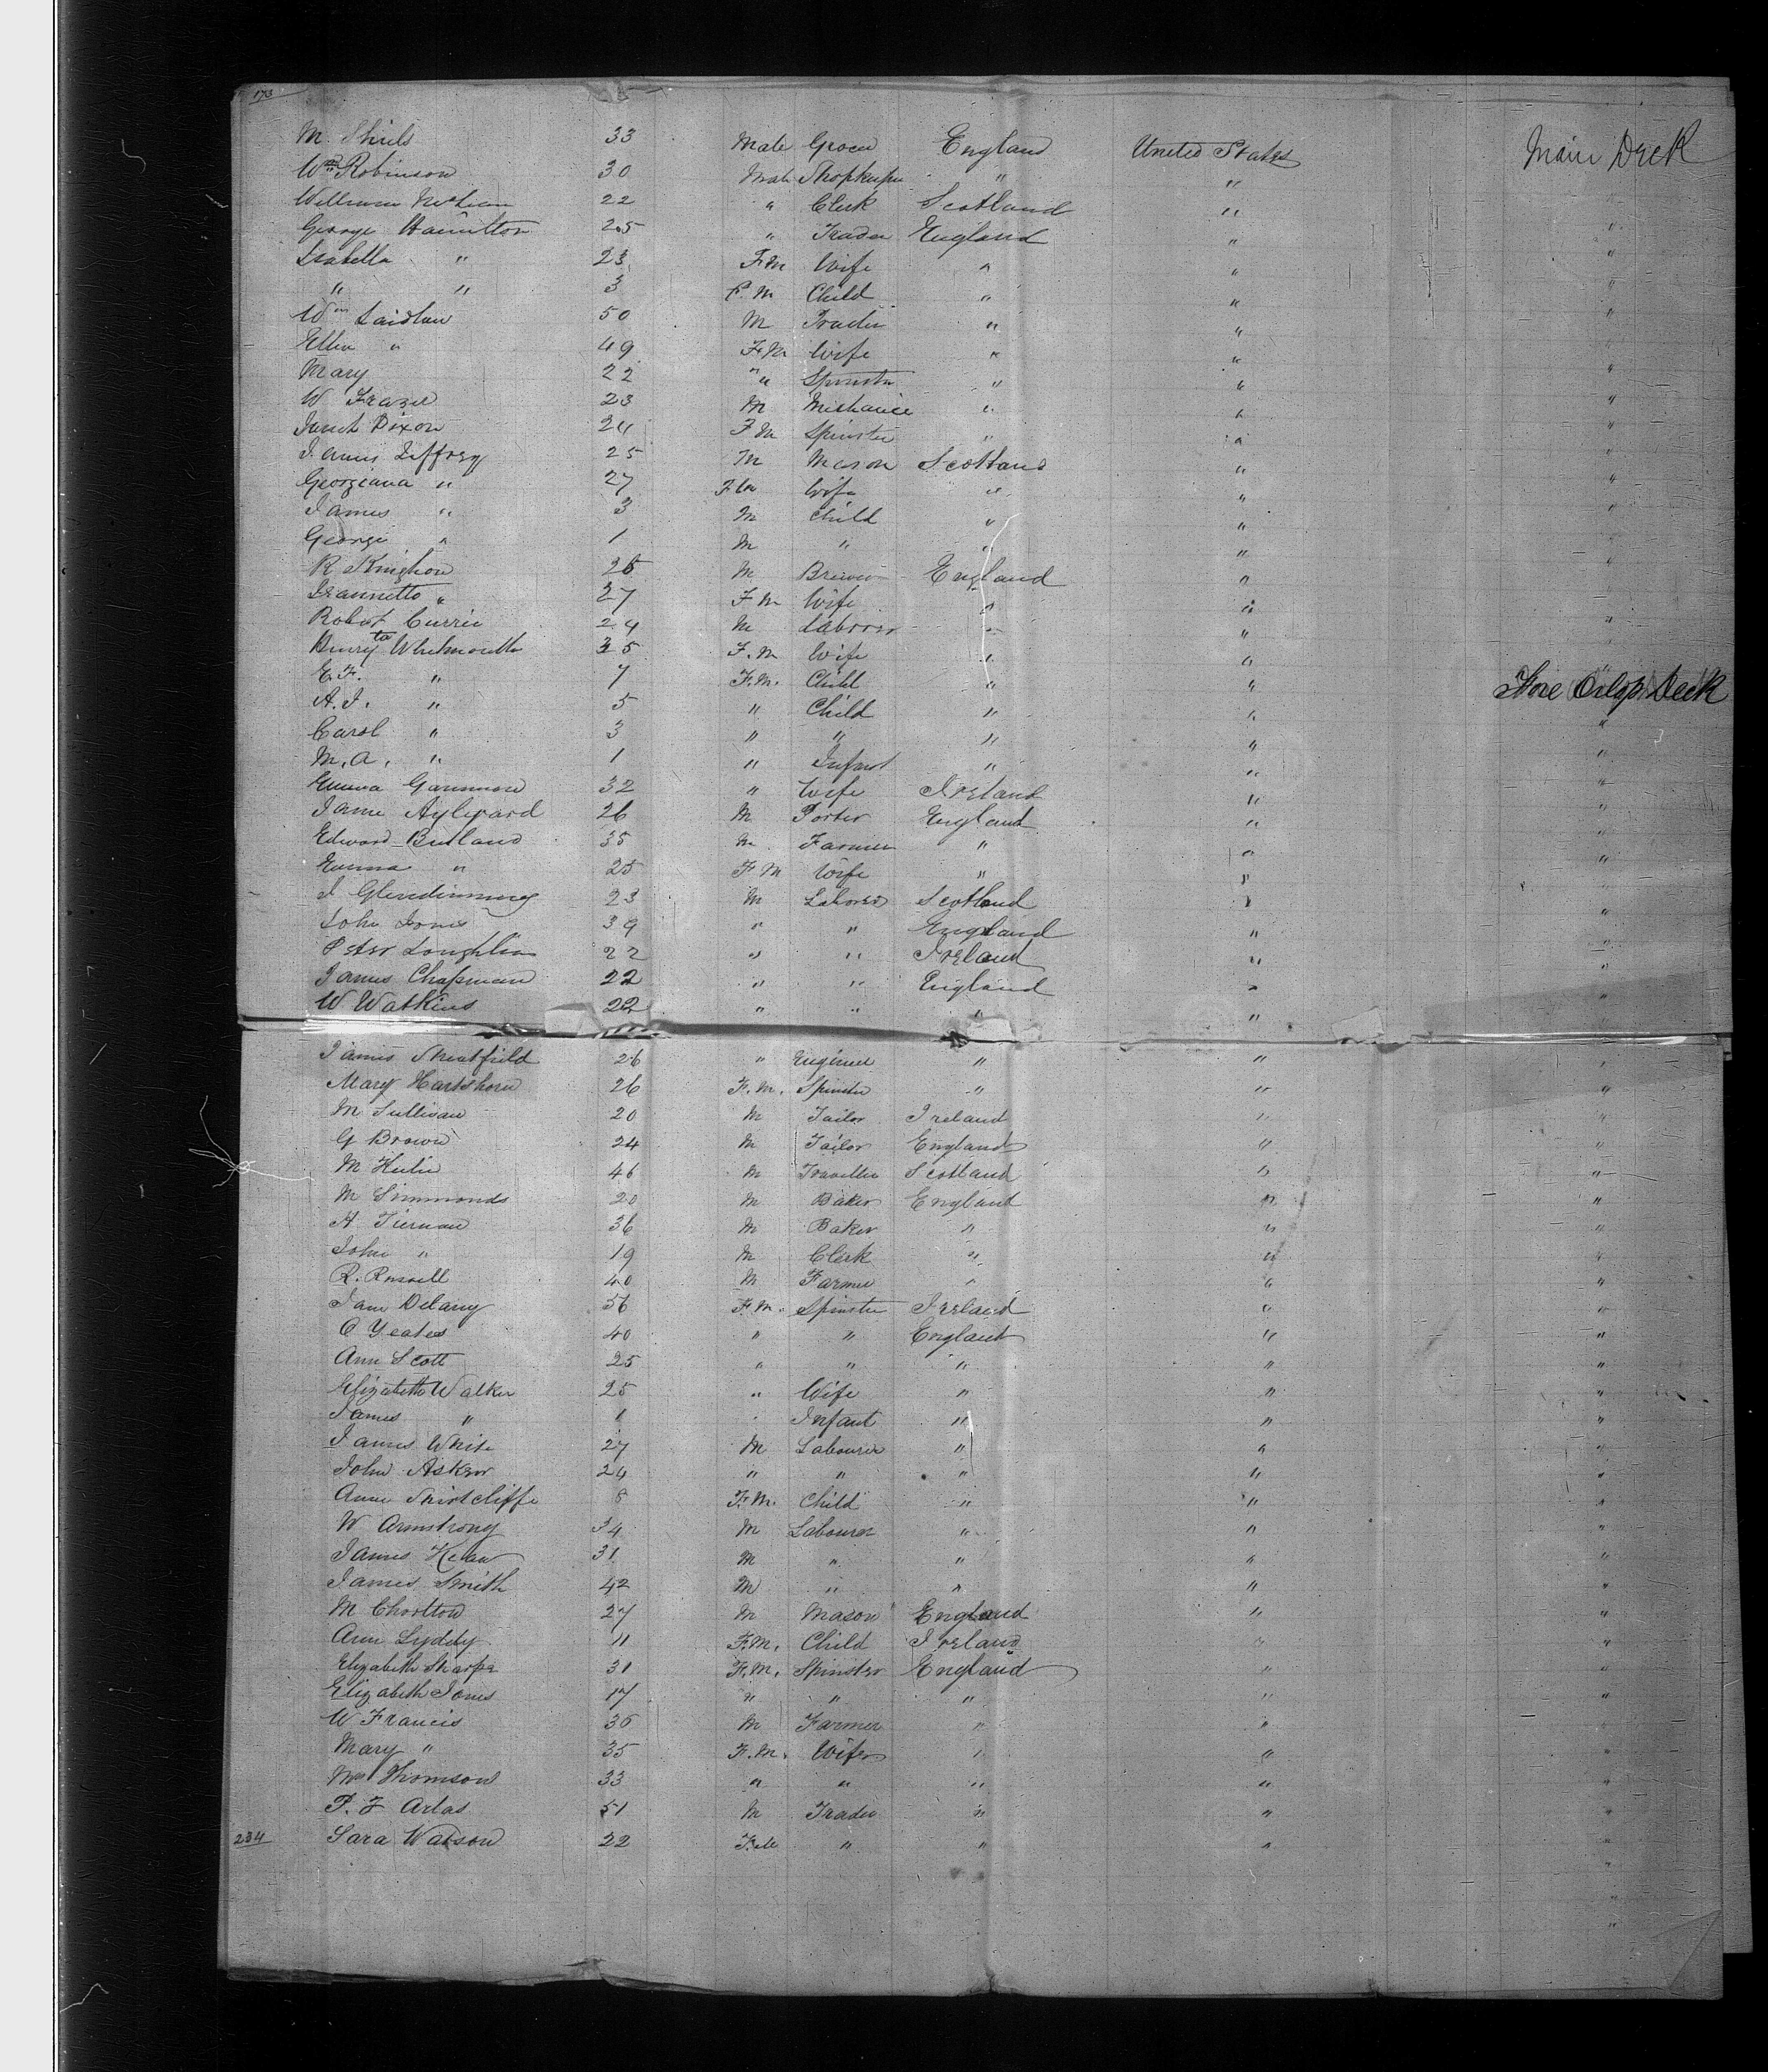 173
M. Shiels 33 Male Grocer England United States Main Deck
Wm Robinson 30 Male Shopkeeper " " "
William McLean 22 " Clerk Scotland " "
George Hamilton 25 " Trader England " "
Isabella " 23 Fm Wife " " "
" " 3 F.M Child " " "
Wm Laidlaw 50 M Trader " " "
Ellen " 49 F.M Wife " " "
Mary 22 " " Spinster " " "
W Frazer 23 M Mechanic " " "
Janet Dixon 24 F M Spinster " " "
James Jeffrey 25 M Mason Scotland " "
Georgiana " 27 F M Wife " " "
James " 3 M Child " " "
George " 1 M " " " "
R Kinghorn M Brewer England " "
Jeannette " 27 F M Wife " " "
Robert Currie 24 M Laborer " " "
Whitmouth 35 F.M Wife " "
E.F. " 7 F.M. Child " " Fore Orlop Deck
A.J. " 5 " Child " " "
Carol " 3 " " " " "
M.A. " 1 " Infant " " "
Emma Gammon 32 " Wife Ireland " "
Jame Aylward 26 M Porter England " "
Edward Butland 35 M Farmer " " "
Emma " 25 F M Wife " " "
J Glendinning 23 M Laborer Scotland " "
John Jones 39 " " England " "
Peter Loughlin 22 " " Ireland " "
James Chapman 22 " " England " "
W Watkins 22 " " " " "
James Sheatfield 26 " Engineer " " "
Mary Hartshorn 26 F.M. Spinster " " "
M Sullivan 20 M Tailor Ireland " "
G Brown 24 M Tailor England " "
M 46 M Traveller Scotland " "
M Simmonds 20 M Baker England " "
H Tiernan 36 M Baker " " "
John " 19 M Clerk " " "
R. Russell 40 M Farmer " " "
Jane Delany 56 F.M. Spinster Ireland " "
C Yeates 40 " " England " "
Ann Scott 25 " " " " "
Elizabeth Walker 25 " Wife " " "
James " 1 " Infant " " "
James White 27 M Labourer " " "
John Asker 24 " " " " "
Anne Shirtcliffe 8 F.M. Child " " "
W Armstrong 34 M Labourer " " "
James Kean 31 M " " " "
James Smith 42 M " " " "
M Chorlton 27 M Mason England " "
Ann Lyddy 11 F.M. Child Ireland " "
Elizabeth Sharpe 31 F.M. Spinster England " "
Elizabeth Jones 17 " " " " "
W Francis 36 M Farmer " " "
Mary " 35 F.M. Wife " " "
Mrs Thomson 33 " " " " "
P. J Arlas 51 M Trader " " "
234 Sara Watson 22 " " " "